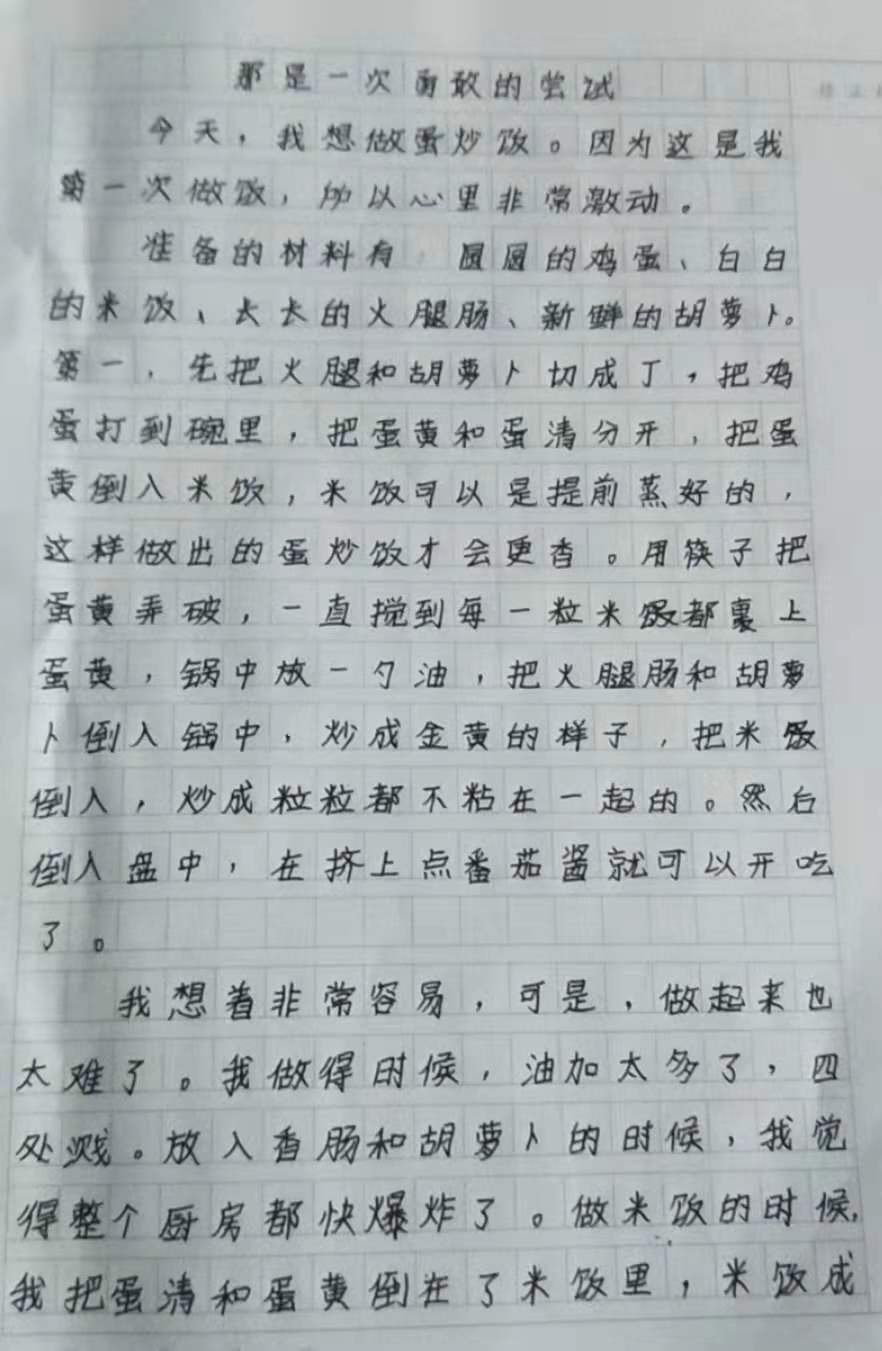 那是一次勇敢的尝试
今天，我想做蛋炒饭。因为这是我
第一次做饭，所以心里非常激动。
准备的材料有 圆圆的鸡蛋、白白
的米饭、长长的火腿肠、新鲜的胡萝卜。
第一，先把火腿和胡萝卜切成丁，把鸡
蛋打到碗里，把蛋黄和蛋清分开，把蛋
黄倒入米饭，米饭可以是提前蒸好的，
这样做出的蛋炒饭才会更香。用筷子把
蛋黄弄破，一直搅到每一粒米饭都裹上
蛋黄，锅中放一勺油，把火腿肠和胡萝
卜倒入锅中，炒成金黄的样子，把米饭
倒入，炒成粒粒都不粘在一起的。然后
倒入盘中，在挤上点番茄酱就可以开吃
了。
我想着非常容易，可是，做起来也
太难了。我做得时候，油加太多了，四
处溅。放入香肠和胡萝卜的时候，我觉
得整个厨房都快爆炸了。做米饭的时候，
我把蛋清和蛋黄倒在了米饭里，米饭成